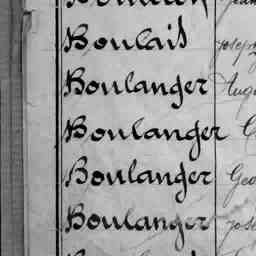 Boulais Joseph
Boulanger Augu
Boulanger C
Boulanger Geo
Boulanger Jose